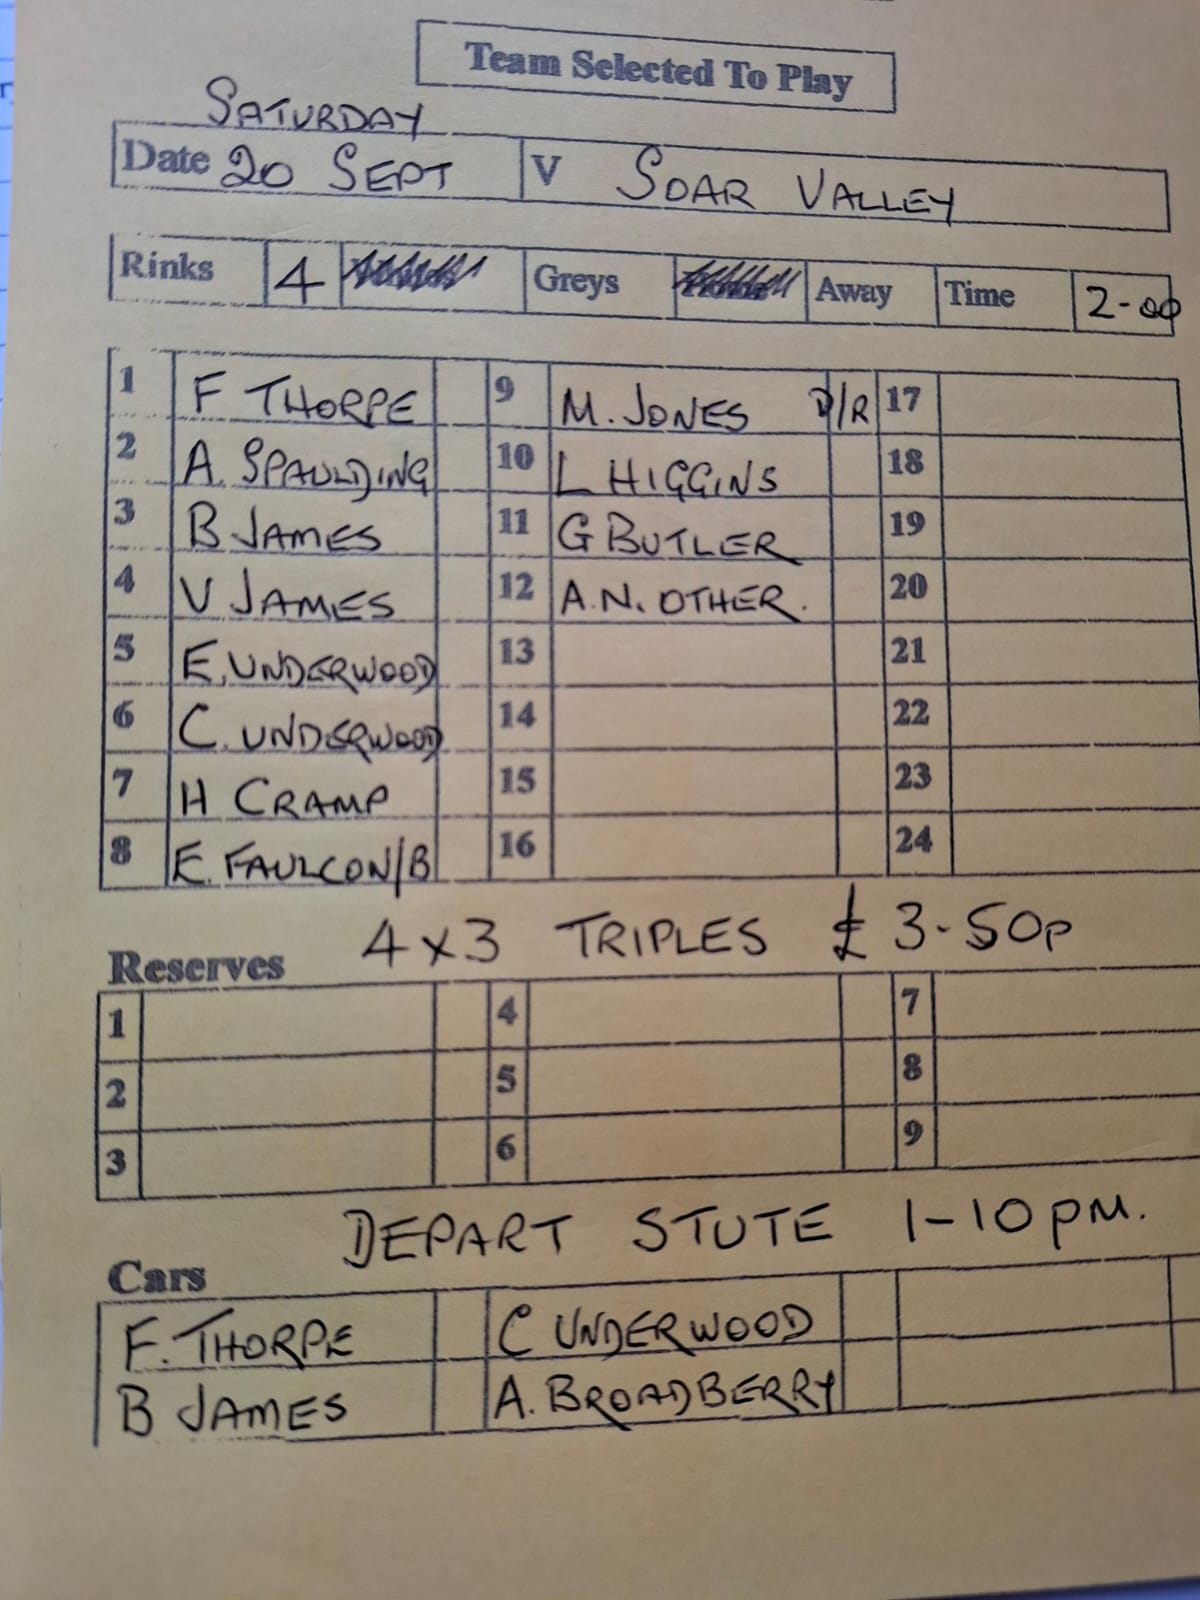 Team Selected To Play
SATURDAY
Date 20 SEPT V SOAR VALLEY
Rinks 4 Greys Away Time 2-00
1 F THORPE 9 M. JONES D/R 17
2 A. SPAULDING 10 L HIGGINS 18
3 B JAMES 11 G BUTLER 19
4 V JAMES 12 A.N. OTHER. 20
5 E. UNDERWOOD 13 21
6 C. UNDERWOOD 14 22
7 H CRAMP 15 23
8 E. FAULCON/B 16 24
4 x 3 TRIPLES £3-50p
Reserves
1 4 7
2 5 8
3 6 9
DEPART STUTE 1-10 PM.
Cars
F. THORPE C UNDERWOOD
B JAMES A. BROADBERRY